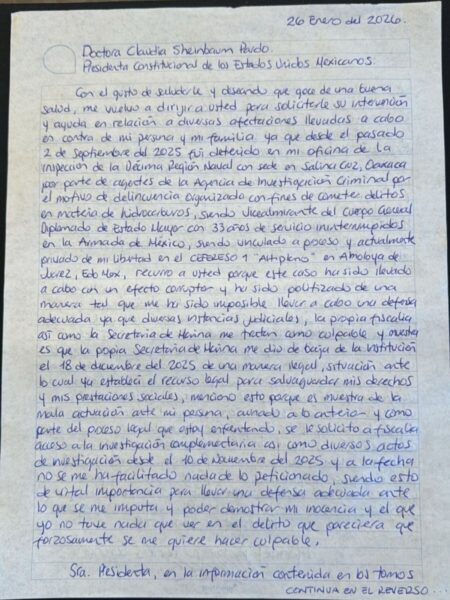 26 Enero del 2026.
Doctora Claudia Sheinbaum Pardo.
Presidenta Constitucional de los Estados Unidos Mexicanos.
Con el gusto de saludarle y deseando que goce de una buena
salud, me vuelvo a dirigir a usted para solicitarle su intervención
y ayuda en relación a diversas afectaciones llevadas a cabo
en contra de mi persona y mi familia ya que desde el pasado
2 de Septiembre del 2025 fui detenido en mi oficina de la
Inspección de la Décima Región Naval con sede en Salina Cruz, Oaxaca
por parte de agentes de la Agencia de Investigación Criminal por
el motivo de delincuencia organizada con fines de cometer delitos
en materia de hidrocarburos, siendo Vicealmirante del Cuerpo General
Diplomado de Estado Mayor con 33 años de servicio ininterrumpidos
en la Armada de México, siendo vinculado a proceso y actualmente
privado de mi libertad en el CEFERESO 1 "Altiplano" en Almoloya de
Juárez, Edo Mex, recurro a usted porque este caso ha sido llevado
a cabo con un efecto corruptor y ha sido politizado de una
manera tal que me ha sido imposible llevar a cabo una defensa
adecuada ya que diversas instancias judiciales, la propia fiscalía
así como la Secretaría de Marina me tratan como culpable y muestra
es que la propia Secretaría de Marina me dio de baja de la Institución
el 18 de diciembre del 2025 de una manera ilegal, situación ante
lo cual ya establecí el recurso legal para salvaguardar mis derechos
y mis prestaciones sociales, menciono esto porque es muestra de la
mala actuación ante mi persona, aunado a lo anterior y como
parte del proceso legal que estoy enfrentando, se le solicitó a fiscalía
acceso a la investigación complementaria así como diversos actos
de investigación desde el 10 de Noviembre del 2025 y a la fecha
no se me ha facilitado nada de lo peticionado, siendo esto
de vital importancia para llevar una defensa adecuada ante
lo que se me imputa y poder demostrar mi inocencia y el que
yo no tuve nada que ver en el delito que pareciera que
forzosamente se me quiere hacer culpable.
Sra. Presidenta, en la información contenida en los tomos
CONTINUA EN EL REVERSO...